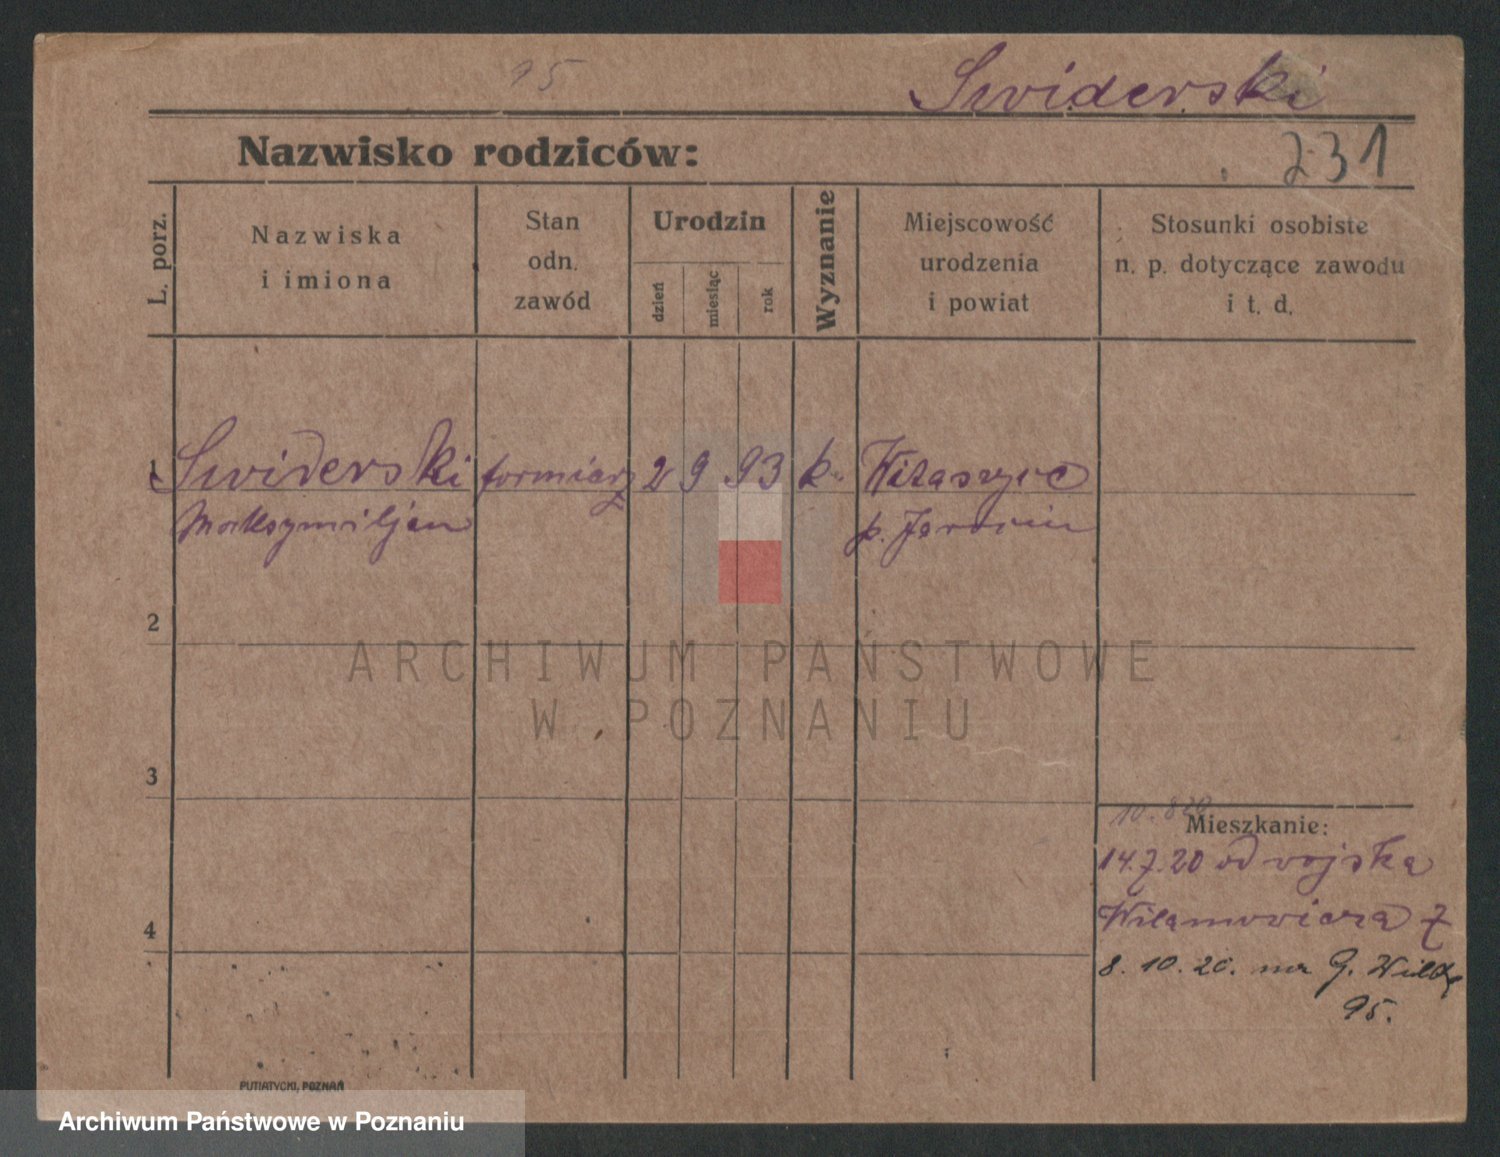 95
Swiderski
231
Nazwisko rodziców:
L. porz.
Nazwiska
i imiona
Stan
odn.
zawód
Urodzin
dzień
miesiąc
rok
Wyznanie
Miejscowość
urodzenia
i powiat
Stosunki osobiste
n. p. dotyczące zawodu
i t. d.
1 Swiderski formiarz 2 9 93 k. Witaszyce
Maksymiljan p. Jarocin
2
ARCHIWUM PAŃSTWOWE
W POZNANIU
3
Mieszkanie:
14.7.20 od wojska
4
8. 10. 20. na G. Wildę
95.
PUTIATYCKI, POZNAŃ
Archiwum Państwowe w Poznaniu